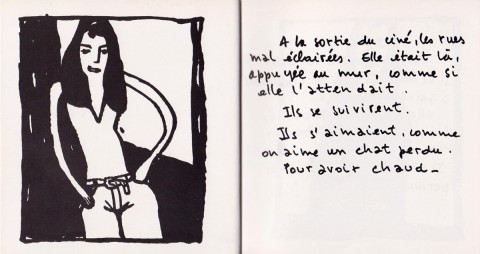 A la sortie du ciné, les rues
mal éclairées. Elle était là,
appuyée au mur, comme si
elle l'attendait.
Ils se suivirent.
Ils s'aimaient, comme
on aime un chat perdu.
Pour avoir chaud_